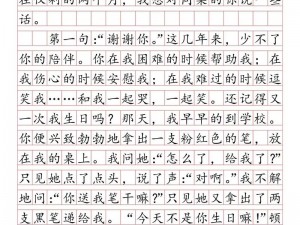 在仅剩的两个月，我想对同桌的你说一些
话。
第一句：“谢谢你。”这几年来，少不了
你的陪伴。你在我困难的时候帮助我；在
我伤心的时候安慰我；在我难过的时候逗
笑我……和我一起哭，一起笑。还记得又
一次我生日吗？那天，我早早的到学校。
你便兴致勃勃地拿出一支粉红色的笔，放
在我的桌上。我问她：“怎么了，给我了？”
只见她点了点头，说了声：“对啊。”我不解
地问：“你送我笔干嘛？”只见你又拿出了两
支黑笔递给我。“今天不是你生日嘛！”顿